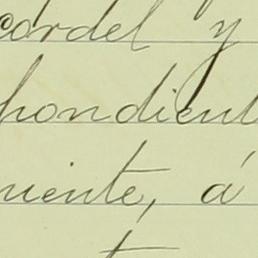 cordel y
pondient
niente, á
t